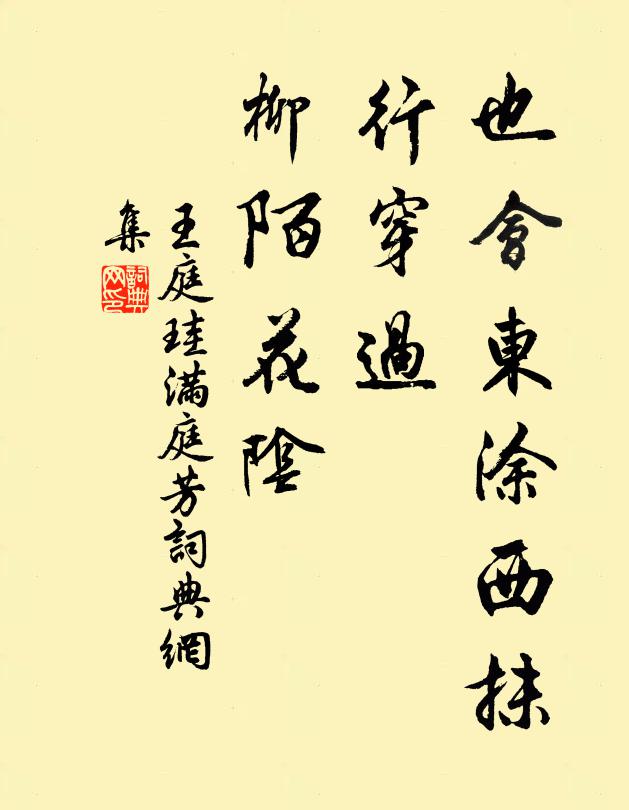 也會東涂西抹
行穿過
柳陌花陰
王庭珪滿庭芳詞典網
集
詞典
网印